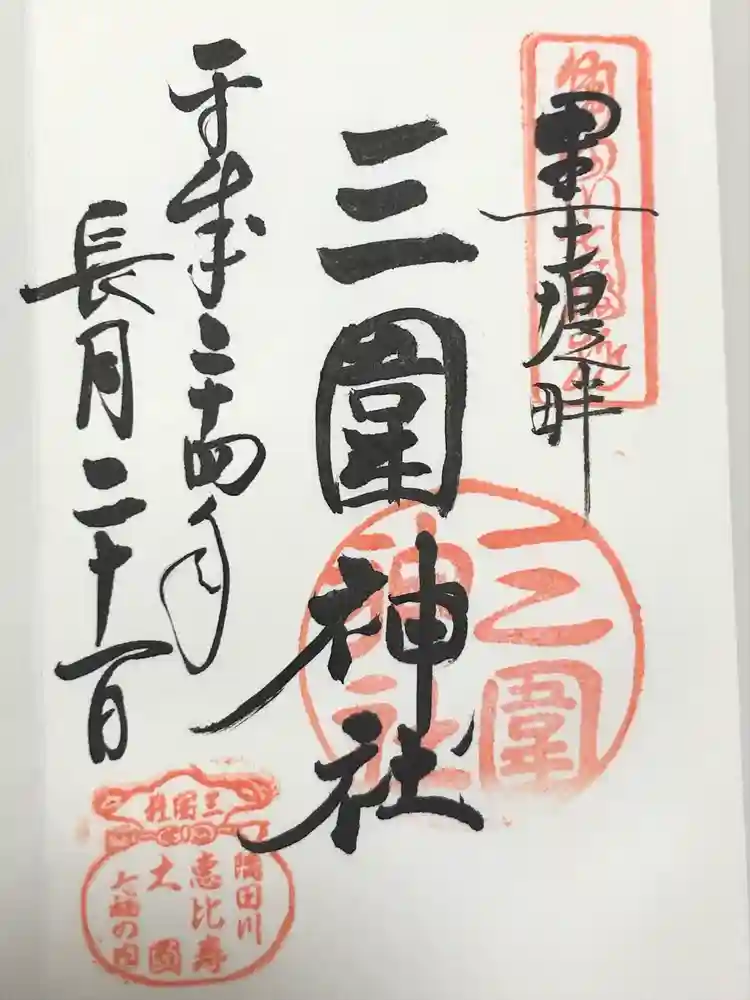 墨堤畔
三圍神社
平成二十四年
長月二十一日
三圍
神社
三圍社
隅田川
恵比寿
大國
七福の内